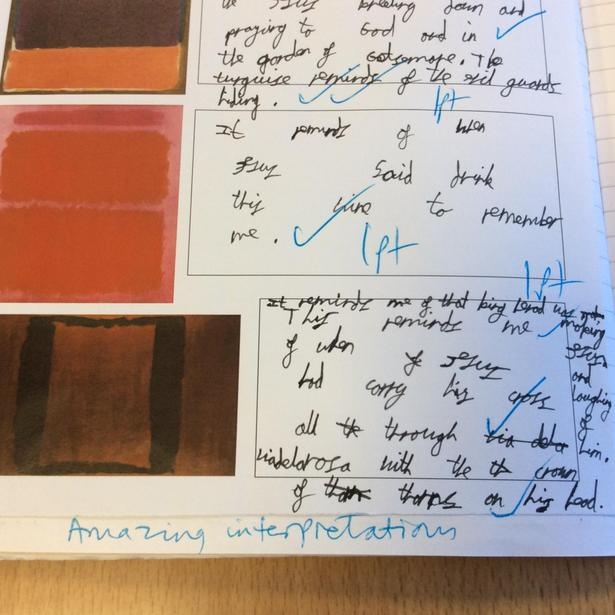 Jesus breaking down and
praying to God and in
the garden of
turquise reminds of the guards
hiding .
1pt
It reminds of when
Jesus said drink
this wine to remember
me .
1pt
1pt
It reminds me of that king herod was
This reminds me
of when Jesus
had carry his cross
all through
viadelarosa with the crown
of on his head.
and
laughing
of
him.
Amazing interpretations